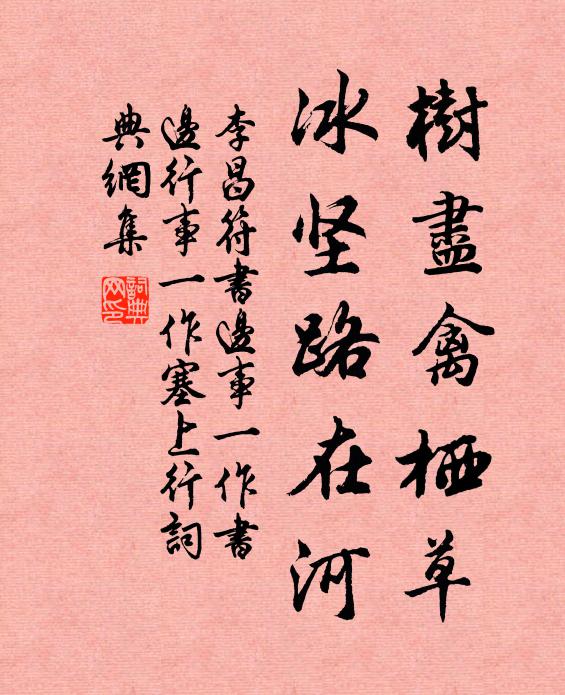 樹盡禽栖草
冰坚路在河
李昌符書邊事一作書
邊行事一作塞上行詞
典網集
詞典网印